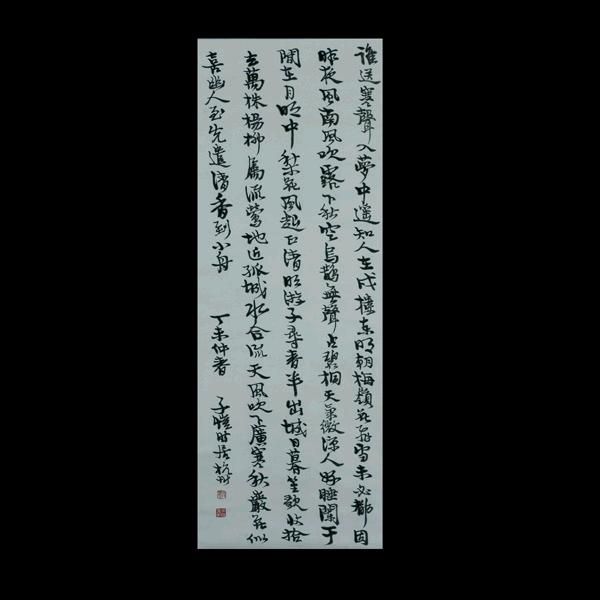 誰送寒聲入夢中遙知人在戍樓東明朝梅嶺花飛雪未必都因
昨夜風南風吹露下秋空烏鵲無聲占碧桐天氣微涼人好睡闌干
閒在月明中梨花風起正清明游子尋春半出城日暮笙歌收拾
去萬株楊柳屬流鶯地近孤城水合流天風吹下廣寒秋巖花似
喜幽人至先遣清香到小舟 丁未仲春 子愷時居杭州